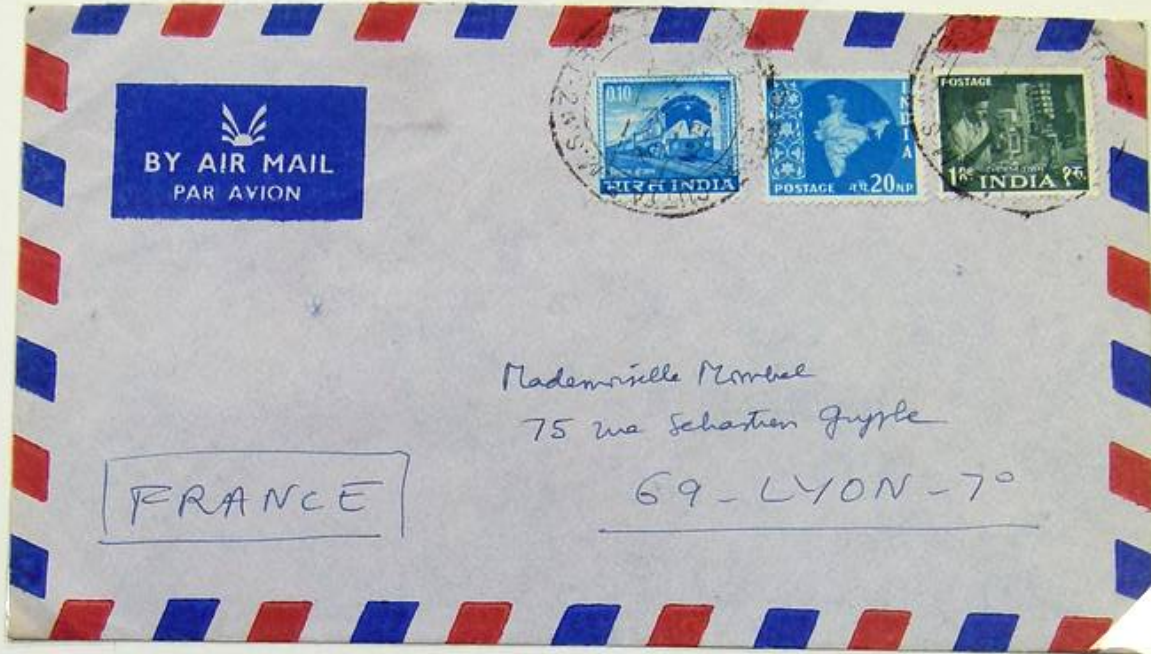 BY AIR MAIL
PAR AVION
0.10
भारत INDIA
INDIA
POSTAGE न.पै. 20 NP
POSTAGE
1 Re INDIA १ रु.
Mademoiselle
75 rue Sébastien
69 - LYON - 7°
FRANCE